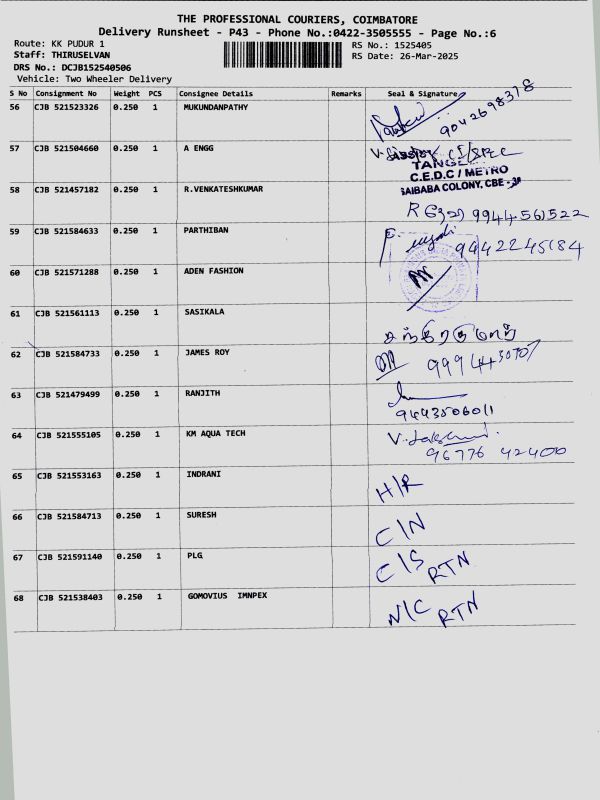 THE PROFESSIONAL COURIERS, COIMBATORE
Delivery Runsheet - P43 - Phone No.:0422-3505555 - Page No.:6
Route: KK PUDUR 1
RS No.: 1525405
Staff: THIRUSELVAN
RS Date: 26-Mar-2025
DRS No.: DCJB152540506
Vehicle: Two Wheeler Delivery
S No Consignment No Weight PCS Consignee Details Remarks Seal & Signature
56 CJB 521523326 0.250 1 MUKUNDANPATHY 9042698378
57 CJB 521504660 0.250 1 A ENGG
TANGE
C.E.D.C / METRO
SAIBABA COLONY, CBE -
58 CJB 521457182 0.250 1 R.VENKATESHKUMAR
9944561522
59 CJB 521584633 0.250 1 PARTHIBAN 9442245184
60 CJB 521571288 0.250 1 ADEN FASHION
61 CJB 521561113 0.250 1 SASIKALA
62 CJB 521584733 0.250 1 JAMES ROY
63 CJB 521479499 0.250 1 RANJITH
9443506011
64 CJB 521555105 0.250 1 KM AQUA TECH
96776 42400
65 CJB 521553163 0.250 1 INDRANI H/R
66 CJB 521584713 0.250 1 SURESH C/N
67 CJB 521591140 0.250 1 PLG C/S RTN
68 CJB 521538403 0.250 1 GOMOVIUS IMNPEX N/C RTN